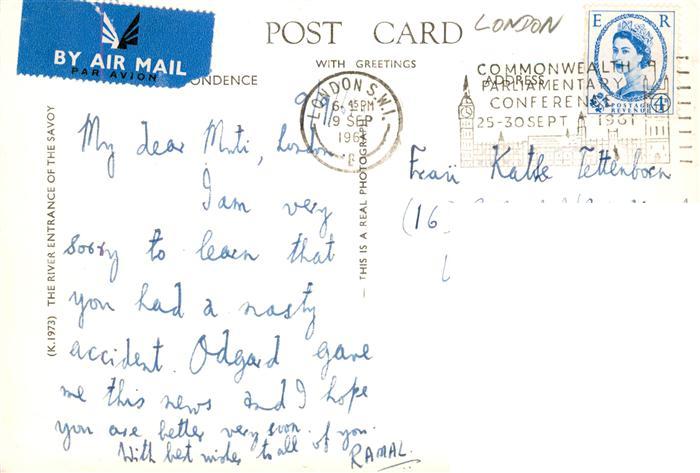 BY AIR MAIL
PAR AVION
POST CARD
LONDON
WITH GREETINGS
ADDRESS
E R
POSTAGE
REVENUE
4D
LONDON S.W.1.
6.15PM
9 SEP
1961
COMMONWEALTH
PARLIAMENTARY
CONFERENCE
25-30 SEPT 1961
(K.1973) THE RIVER ENTRANCE OF THE SAVOY
THIS IS A REAL PHOTOGRAPH
My dear Muti, London
I am very
sorry to learn that
you had a nasty
accident. Odgard gave
me this news and I hope
you are better very soon.
With best wishes to all of you.
RAMAL.
Frau Kathe Tettenborn
(16